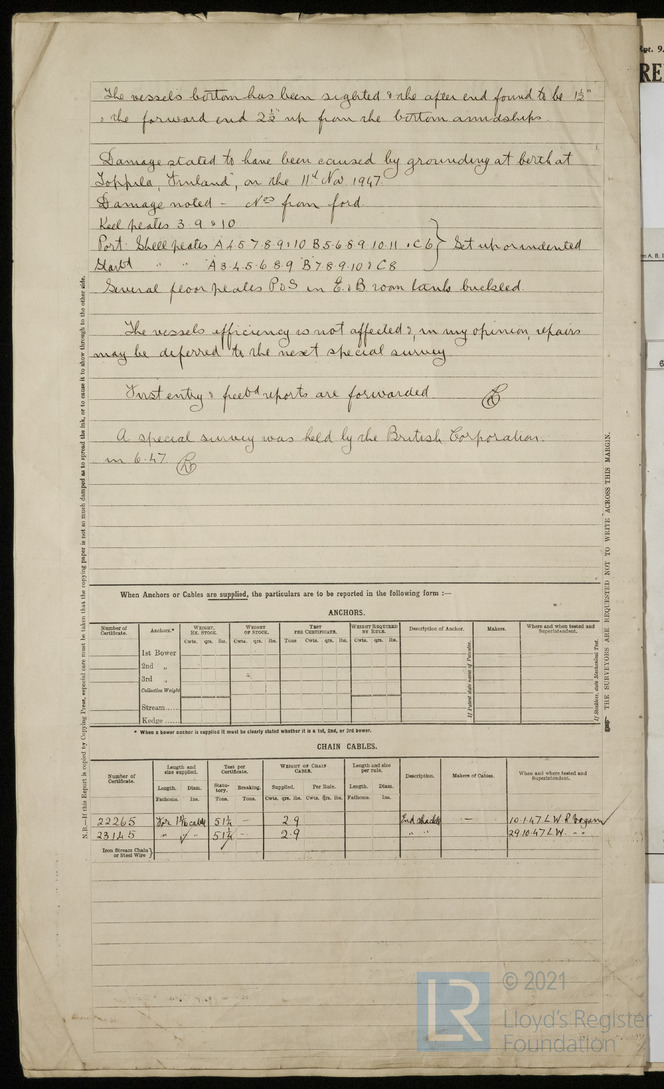 The vessels bottom has been sighted & the after end found to be 1½"
& the forward end 2½" up from the bottom amidships.
Damage stated to have been caused by grounding at berth at
Toppila, Finland, on the 11th Nov 1947
Damage noted - Nos from ford.
Keel plates 3. 9 & 10
Port Shell plates A 4 5 7 8 9 & 10 B 5. 6 8 9 10. 11 & C 6 } Set up or indented
Starbd " " A 3. 4. 5. 6. 8. 9 B 7 8 9. 10 & C 8
Several floor plates P & S in E. & B room tanks buckled.
The vessels efficiency is not affected &, in my opinion, repairs
may be deferred to the next special survey
First entry & freebd reports are forwarded
A special survey was held by the British Corporation.
in 6. 47
When Anchors or Cables are supplied, the particulars are to be reported in the following form :—
ANCHORS.
Number of Certificate. Anchors.* Weight, Ex. Stock. Weight of Stock. Test per Certificate. Weight Required by Rule. Description of Anchor. Makers. Where and when tested and Superintendent.
Cwts. qrs. lbs. Cwts. qrs. lbs. Tons Cwts. qrs. lbs. Cwts. qrs. lbs.
1st Bower
2nd „
3rd „
Collective Weight
Stream
Kedge
If Patent state name of Patentee.
* When a bower anchor is supplied it must be clearly stated whether it is a 1st, 2nd, or 3rd bower.
CHAIN CABLES.
Number of Certificate. Length and size supplied. Test per Certificate. Weight of Chain Cable. Length and size per rule. Description. Makers of Cables. When and where tested and Superintendent.
Length. Diam. Statutory. Breaking. Supplied. Per Rule. Length. Diam.
Fathoms. Ins. Tons. Tons. Cwts. qrs. lbs. Cwts. qrs. lbs. Fathoms. Ins.
22265 For cable 51¼ - 2. 9 End shackle - 10.1.47 L W
23145 " " 51¼ - 2. 9 " " 29 10 47 L W. " "
Iron Stream Chain or Steel Wire }
N.B.—If this Report is copied by Copying Press, especial care must be taken that the copying paper is not so much damped as to spread the ink, or to cause it to show through to the other side.
THE SURVEYORS ARE REQUESTED NOT TO WRITE ACROSS THIS MARGIN.
Rpt. 9.
RE
LR
© 2021
Lloyd's Register
Foundation